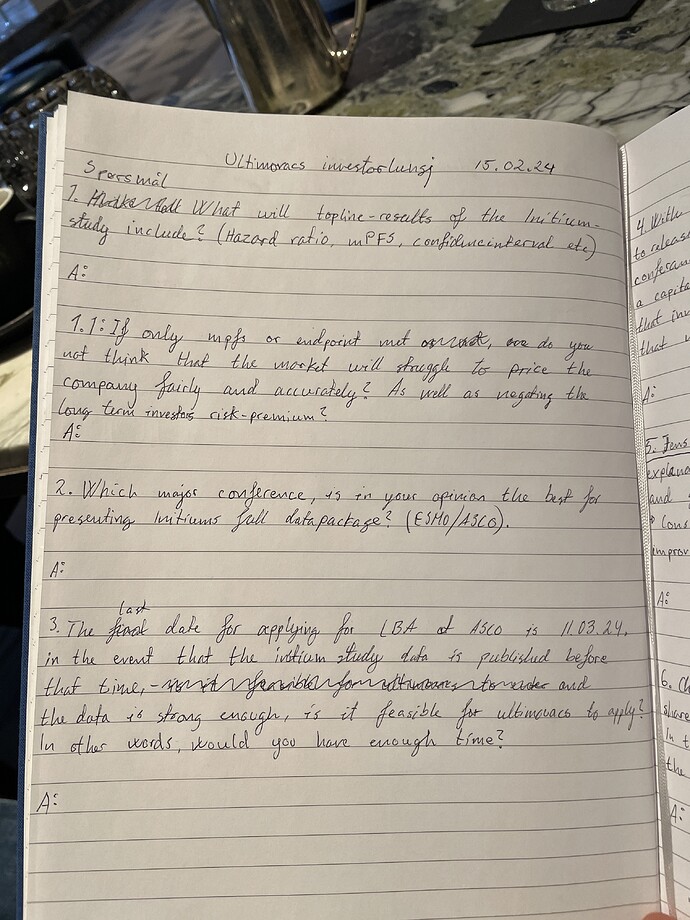 Ultimovacs investorlunsj 15.02.24
Spørsmål
1. What will topline-results of the Initium-
study include? (Hazard ratio, mPFS, confidenceinterval etc)
A:
1.1: If only mpfs or endpoint met or not, are do you
not think that the market will struggle to price the
company fairly and accurately? As well as negating the
long term investors risk-premium?
A:
2. Which major conference, is in your opinion the best for
presenting Initiums full datapackage? (ESMO/ASCO).
A:
last
3. The final date for applying for LBA at ASCO is 11.03.24.
in the event that the initium study data is published before
that time, - is it feasible for ultimovacs to and
the data is strong enough, is it feasible for ultimovacs to apply?
In other words, would you have enough time?
A:
4. With
to releas
conferan
a capita
that inv
that w
A:
5.
explana
and
Cons
improv
A:
6. Ch
share
In t
the
A: